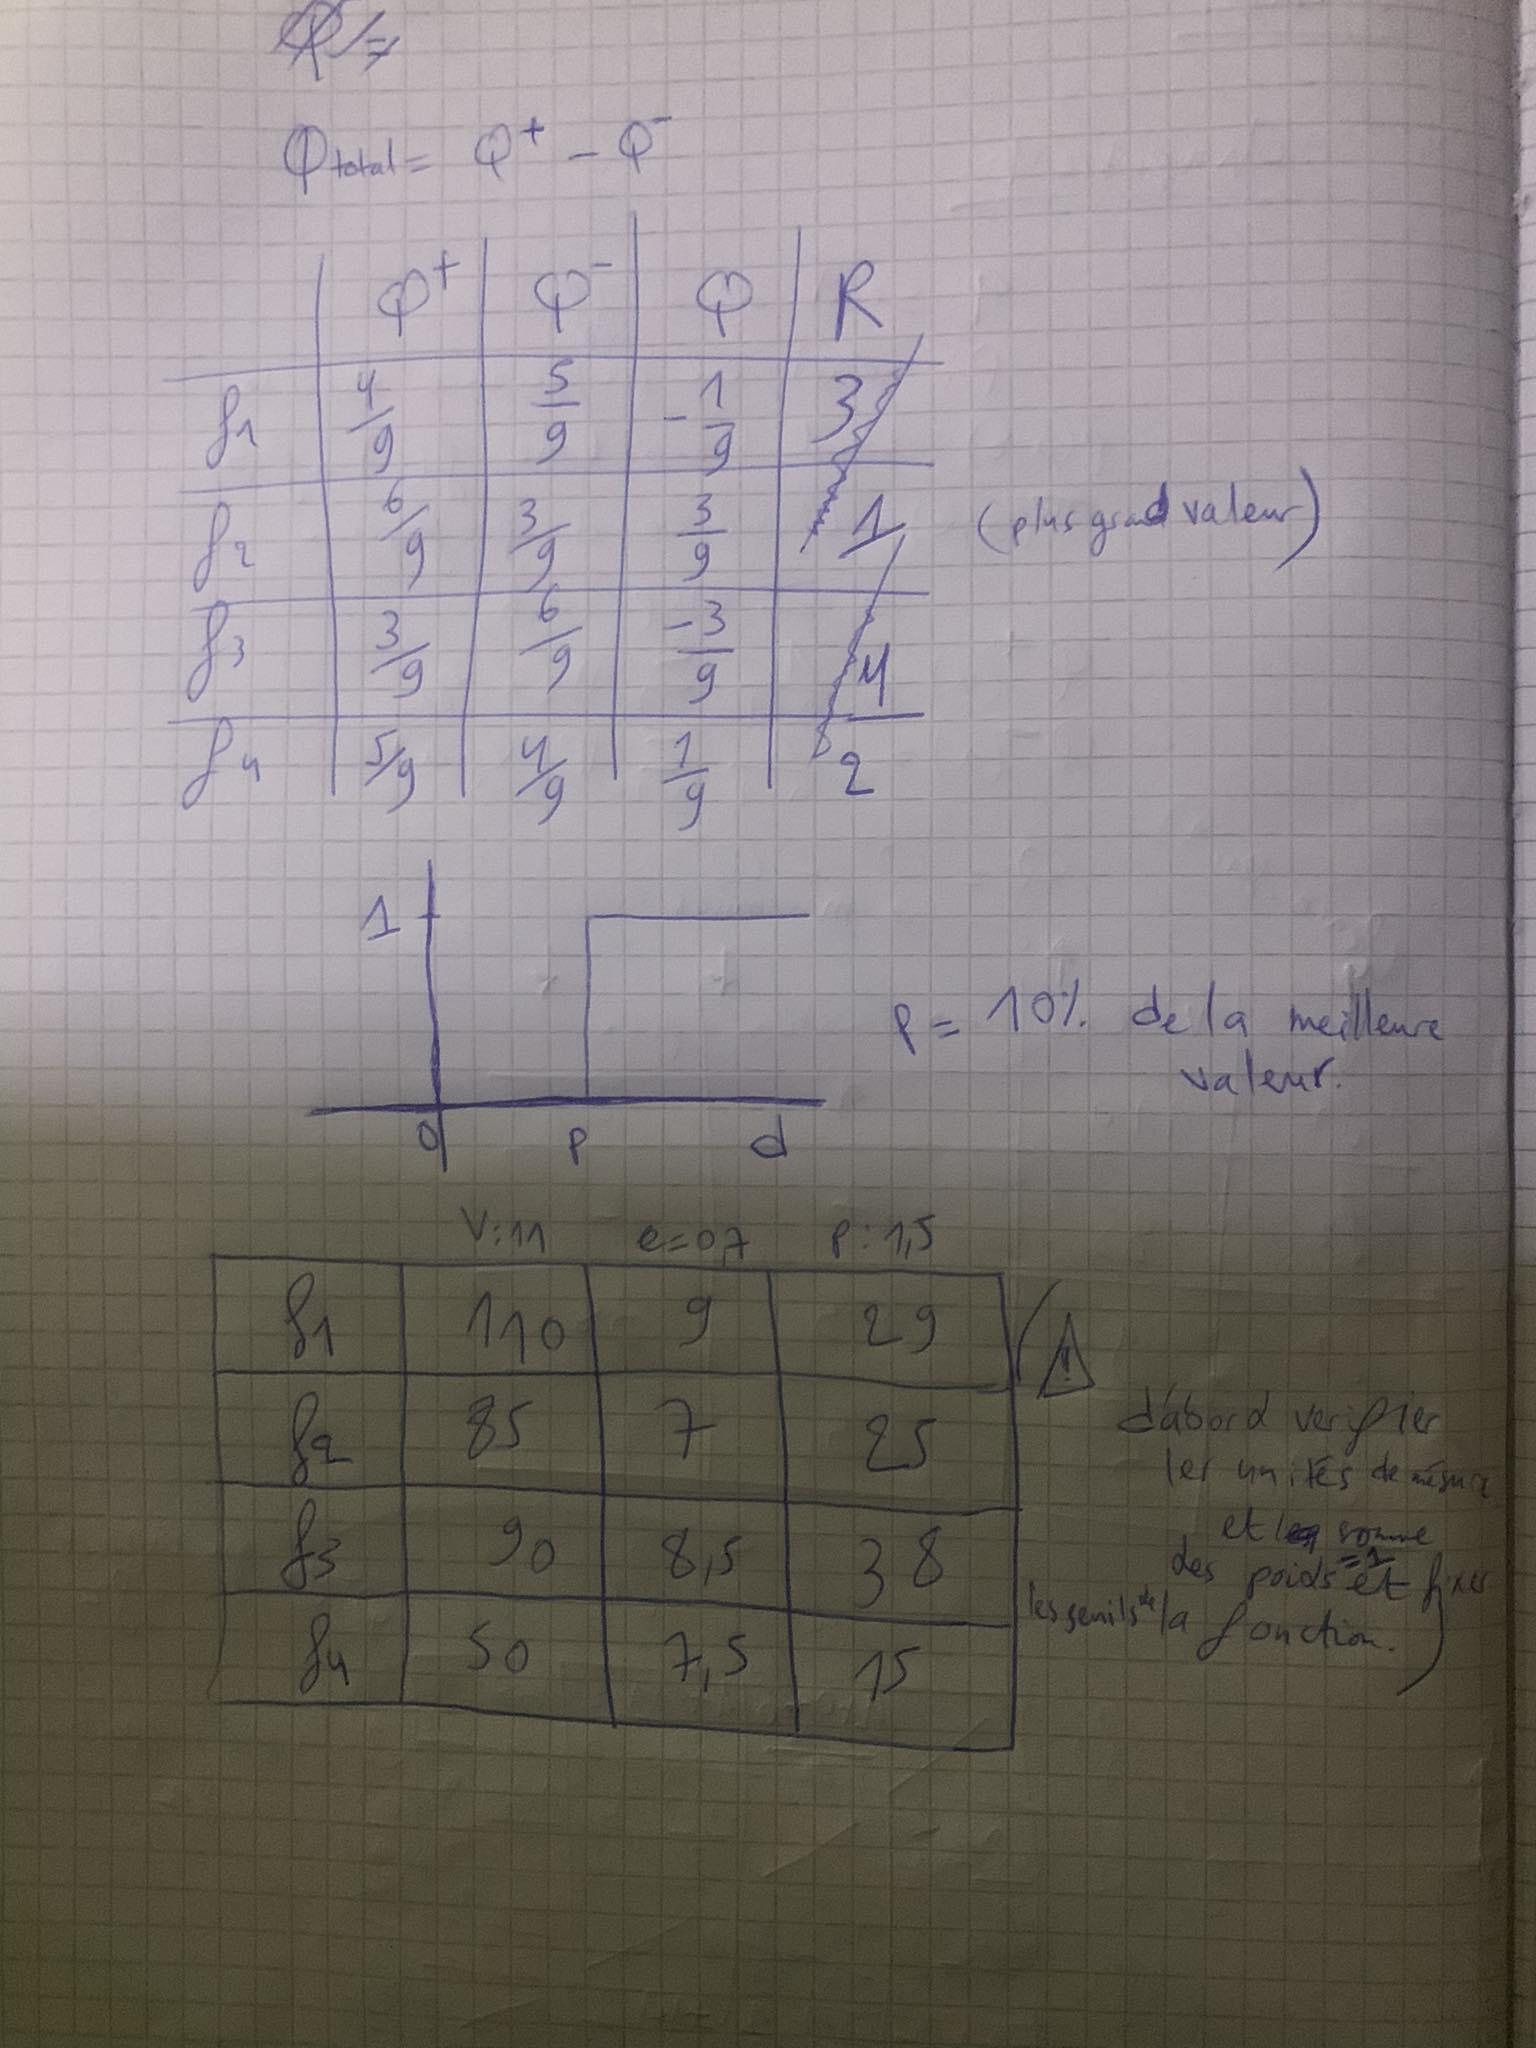 φ total = φ⁺ - φ⁻
φ⁺ φ⁻ φ R
f1 4/9 5/9 -1/9 3
f2 6/9 3/9 3/9 1 (plus grand valeur)
f3 3/9 6/9 -3/9 4
f4 5/9 4/9 1/9 2
1
p = 10% de la meilleure
valeur.
0 p d
V:11 e=0,7 p:1,5
f1 110 9 29
f2 85 7 25
f3 90 8,5 38
f4 50 7,5 15
(!
d'abord verifier
les unités de mesure
et somme
des poids =1 et fixer
les seuils de la fonction.)